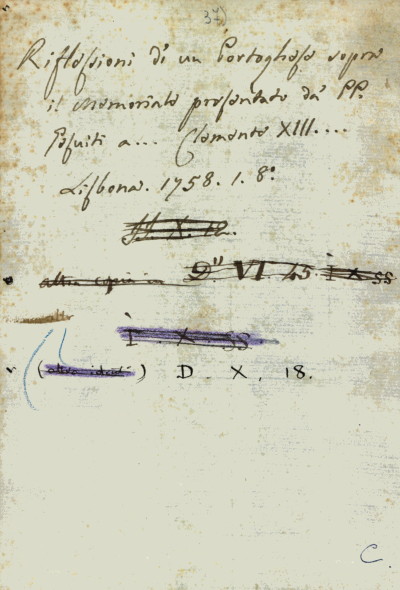 37)
Riflessioni di un Portoghese sopra
il Memoriale presentato da' PP.
Gesuiti a... Clemente XIII....
Lisbona. 1758. 1. 8º.
H. X. 12.
altra copia in D" VI 45 I X 55
I X 55
(altra ident) D. X, 18.
C.